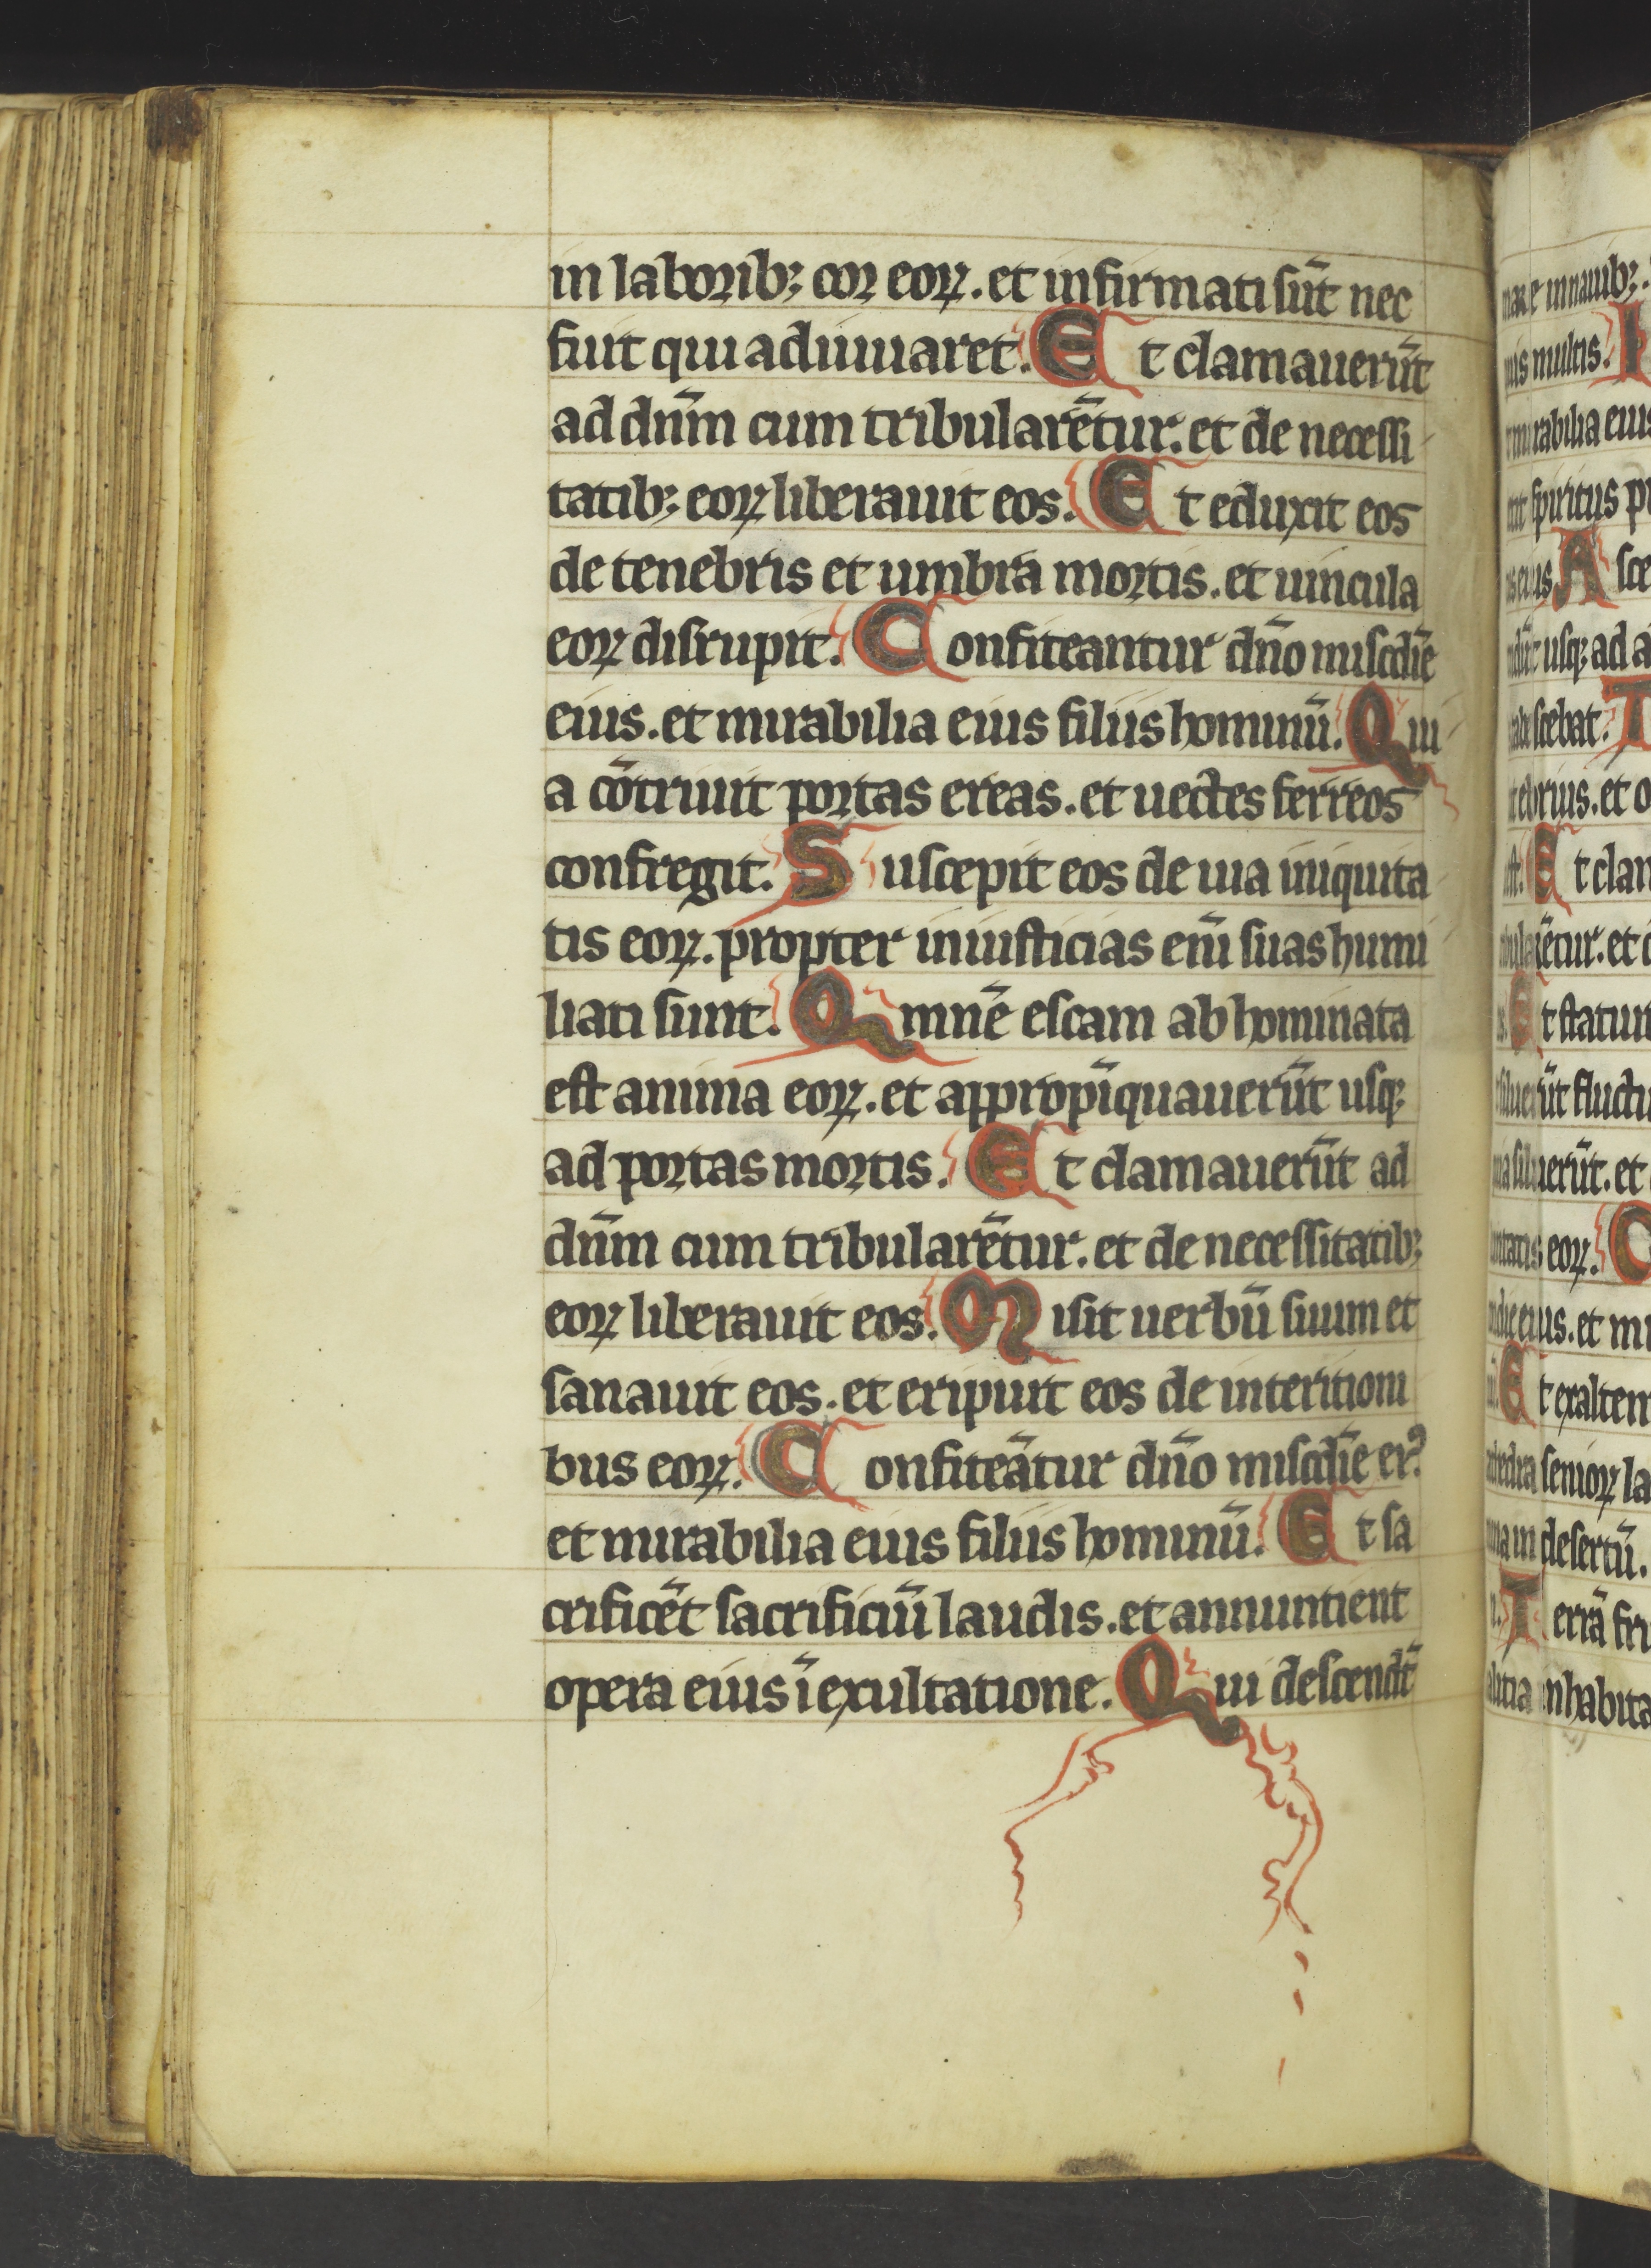 in laborib; cor eoꝝ. et infirmati sūt nec
fuit qui adiuuaret. Et clamauerūt
ad dn̄m cum tribularētur. et de necessi
tatib; eoꝝ liberauit eos. Et eduxit eos
de tenebris et umbra mortis. et uincula
eoꝝ disrupit. Confiteantur dn̄o miscd̄ie
eius. et mirabilia eius filiis hominū. Qui
a cōtriuit portas ereas. et uectes ferreos
confregit. Suscepit eos de uia iniquita
tis eoꝝ. propter iniusticias eni̅ suas humi
liati sunt. Omnē escam abhominata
est anima eoꝝ. et appropīquauerūt usq;
ad portas mortis. Et clamauerūt ad
dn̄m cum tribularētur. et de necessitatib;
eoꝝ liberauit eos. Misit uerbū suum et
sanauit eos. et eripuit eos de interitioni
bus eoꝝ. Confiteātur dn̄o miscd̄ie eiꝰ.
et mirabilia eius filiis hominū. Et sa
crificēt sacrificiū laudis. et annuntient
opera eius ī exultatione. Qui descendt̄
mare in nauib;.
multis. I
mirabilia eius
spiritus p
eius. Asce
usq; ad a
scebat. T
ebrius. et o
est. Et clam
ētur. et d
Et statuit
fluctu
siluerūt. et
eoꝝ. C
eius. et mi
Et exalten
senioꝝ la
in desertū.
Terrā fru
inhabita